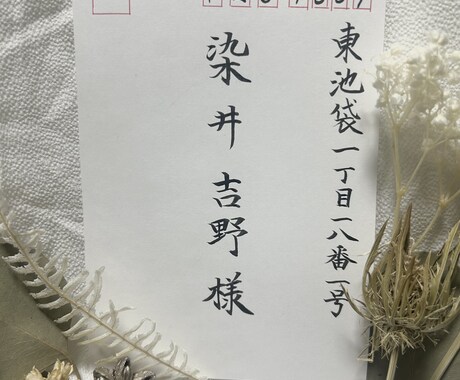 東池袋一丁目一八番一号
染井吉野様